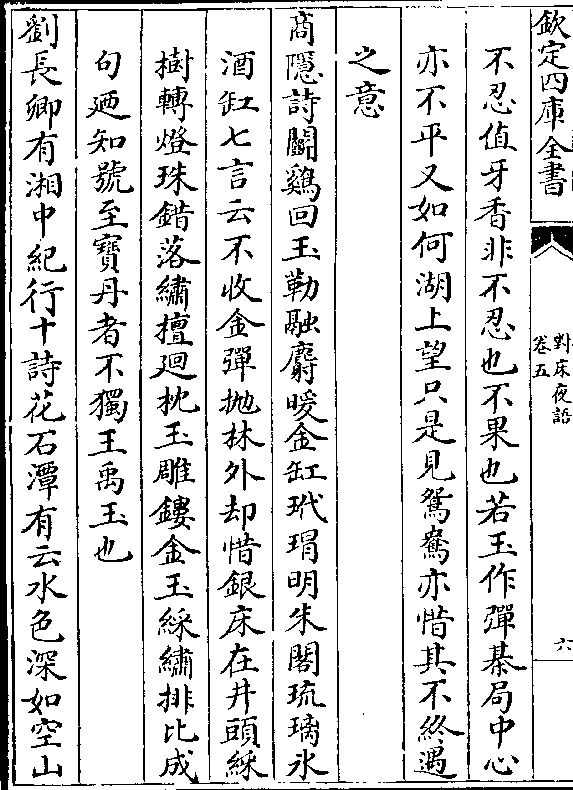 欽定四庫全書
對床夜語
卷五
六
不忍值牙香非不忍也不果也若玉作彈棊局中心
亦不平又如何湖上望只是見鴛鴦亦惜其不終遇
之意
商隱詩鬭鷄回玉勒融麝暖金缸玳瑁明朱閣琉璃氷
酒缸七言云不收金彈抛林外却惜銀床在井頭綵
樹轉燈珠錯落繡檀廻枕玉雕鎪金玉綵繡排比成
句廼知號至寶丹者不獨王禹玉也
劉長卿有湘中紀行十詩花石潭有云水色深如空山